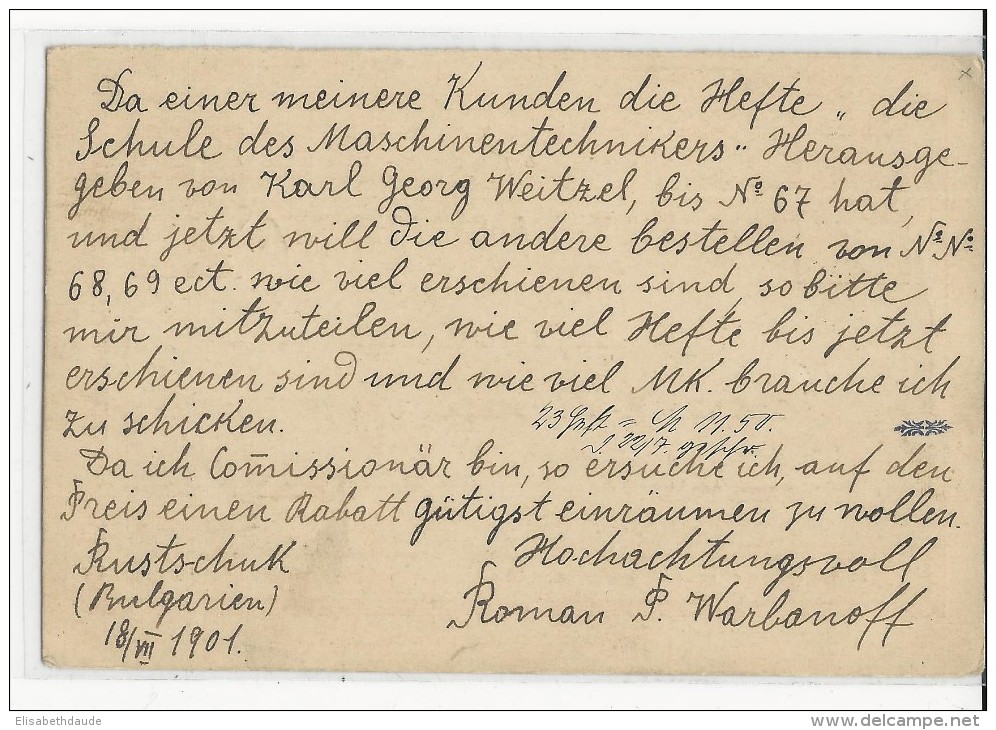 Da einer meinere Kunden die Hefte „ die
Schule des Maschinentechnikers " Herausge-
geben von Karl Georg Weitzel, bis Nº 67 hat,
und jetzt will die andere bestellen von NºNº
68, 69 ect. wie viel erschienen sind, so bitte
mir mitzuteilen, wie viel Hefte bis jetzt
erschienen sind und wie viel MK. brauche ich
zu schicken.
23 Hft = M 11.50.
22/7.
Da ich Com̄issionär bin, so ersuche ich, auf den
Preis einen Rabatt gütigst einräumen zu wollen.
Rustschuk
Hochachtungsvoll
(Bulgarien)
Roman P. Warbanoff
18/VII 1901.
Elisabethdaude
www.delcampe.net